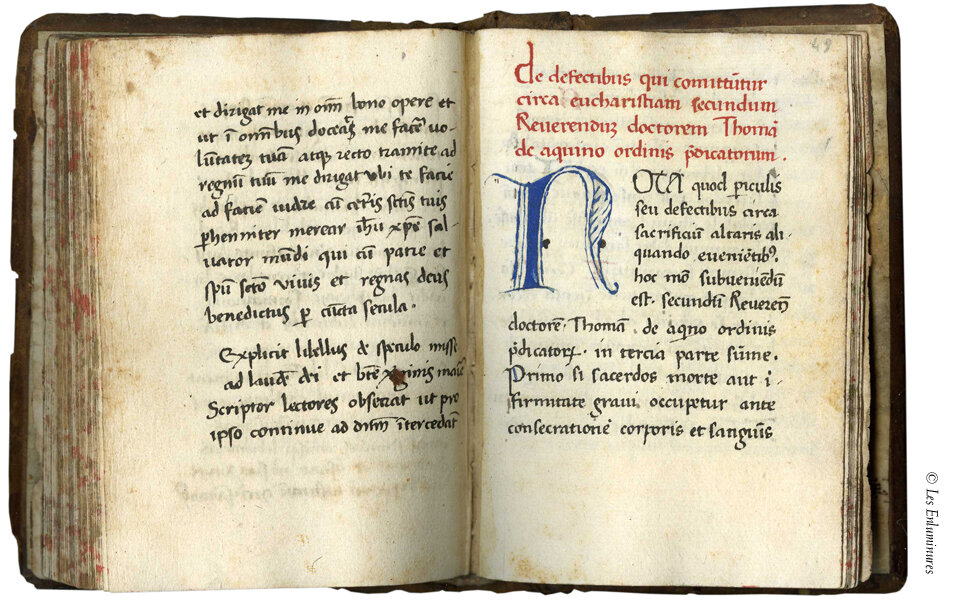 et dirigat me in om̄ī bono opere et
ut ī om̄ibus doceas me facē vo-
lūtatez tuā atqz recto tramite ad
regnū tuū me dirigat ubi te facie
ad faciē videre cū cet̄is sc̄tis tuis
ꝑhenniter merear ih̄u xp̄e sal-
vator mūdi qui cū patre et
sp̄u sc̄to vivis et regnas deus
benedictus ꝑ cūcta secula .
Explicit libellus de speculo misse
ad laudē dei et bt̄e v̄ginis marie
Scriptor lectores obsecrat ut pro
ipso continue ad dn̄m ītercedāt
49
de defectibus qui comittūtur
circa eucharistiam secundum
Reverenduz doctorem Thomā
de aquino ordinis p̄dicatorum .
NOTA quod ꝑiculis
seu defectibus circa
sacrificiū altaris ali-
quando evenientibꝰ.
hoc mō subveniēdū
est. secundū Reverēd
doctorē. Thomā. de aqīo ordinis
p̄dicatorꝝ. in tercia parte sūme.
Primo si sacerdos morte aut ī-
firmitate gravi occupetur ante
consecrationē corporis et sanguīs
© Les Enluminures